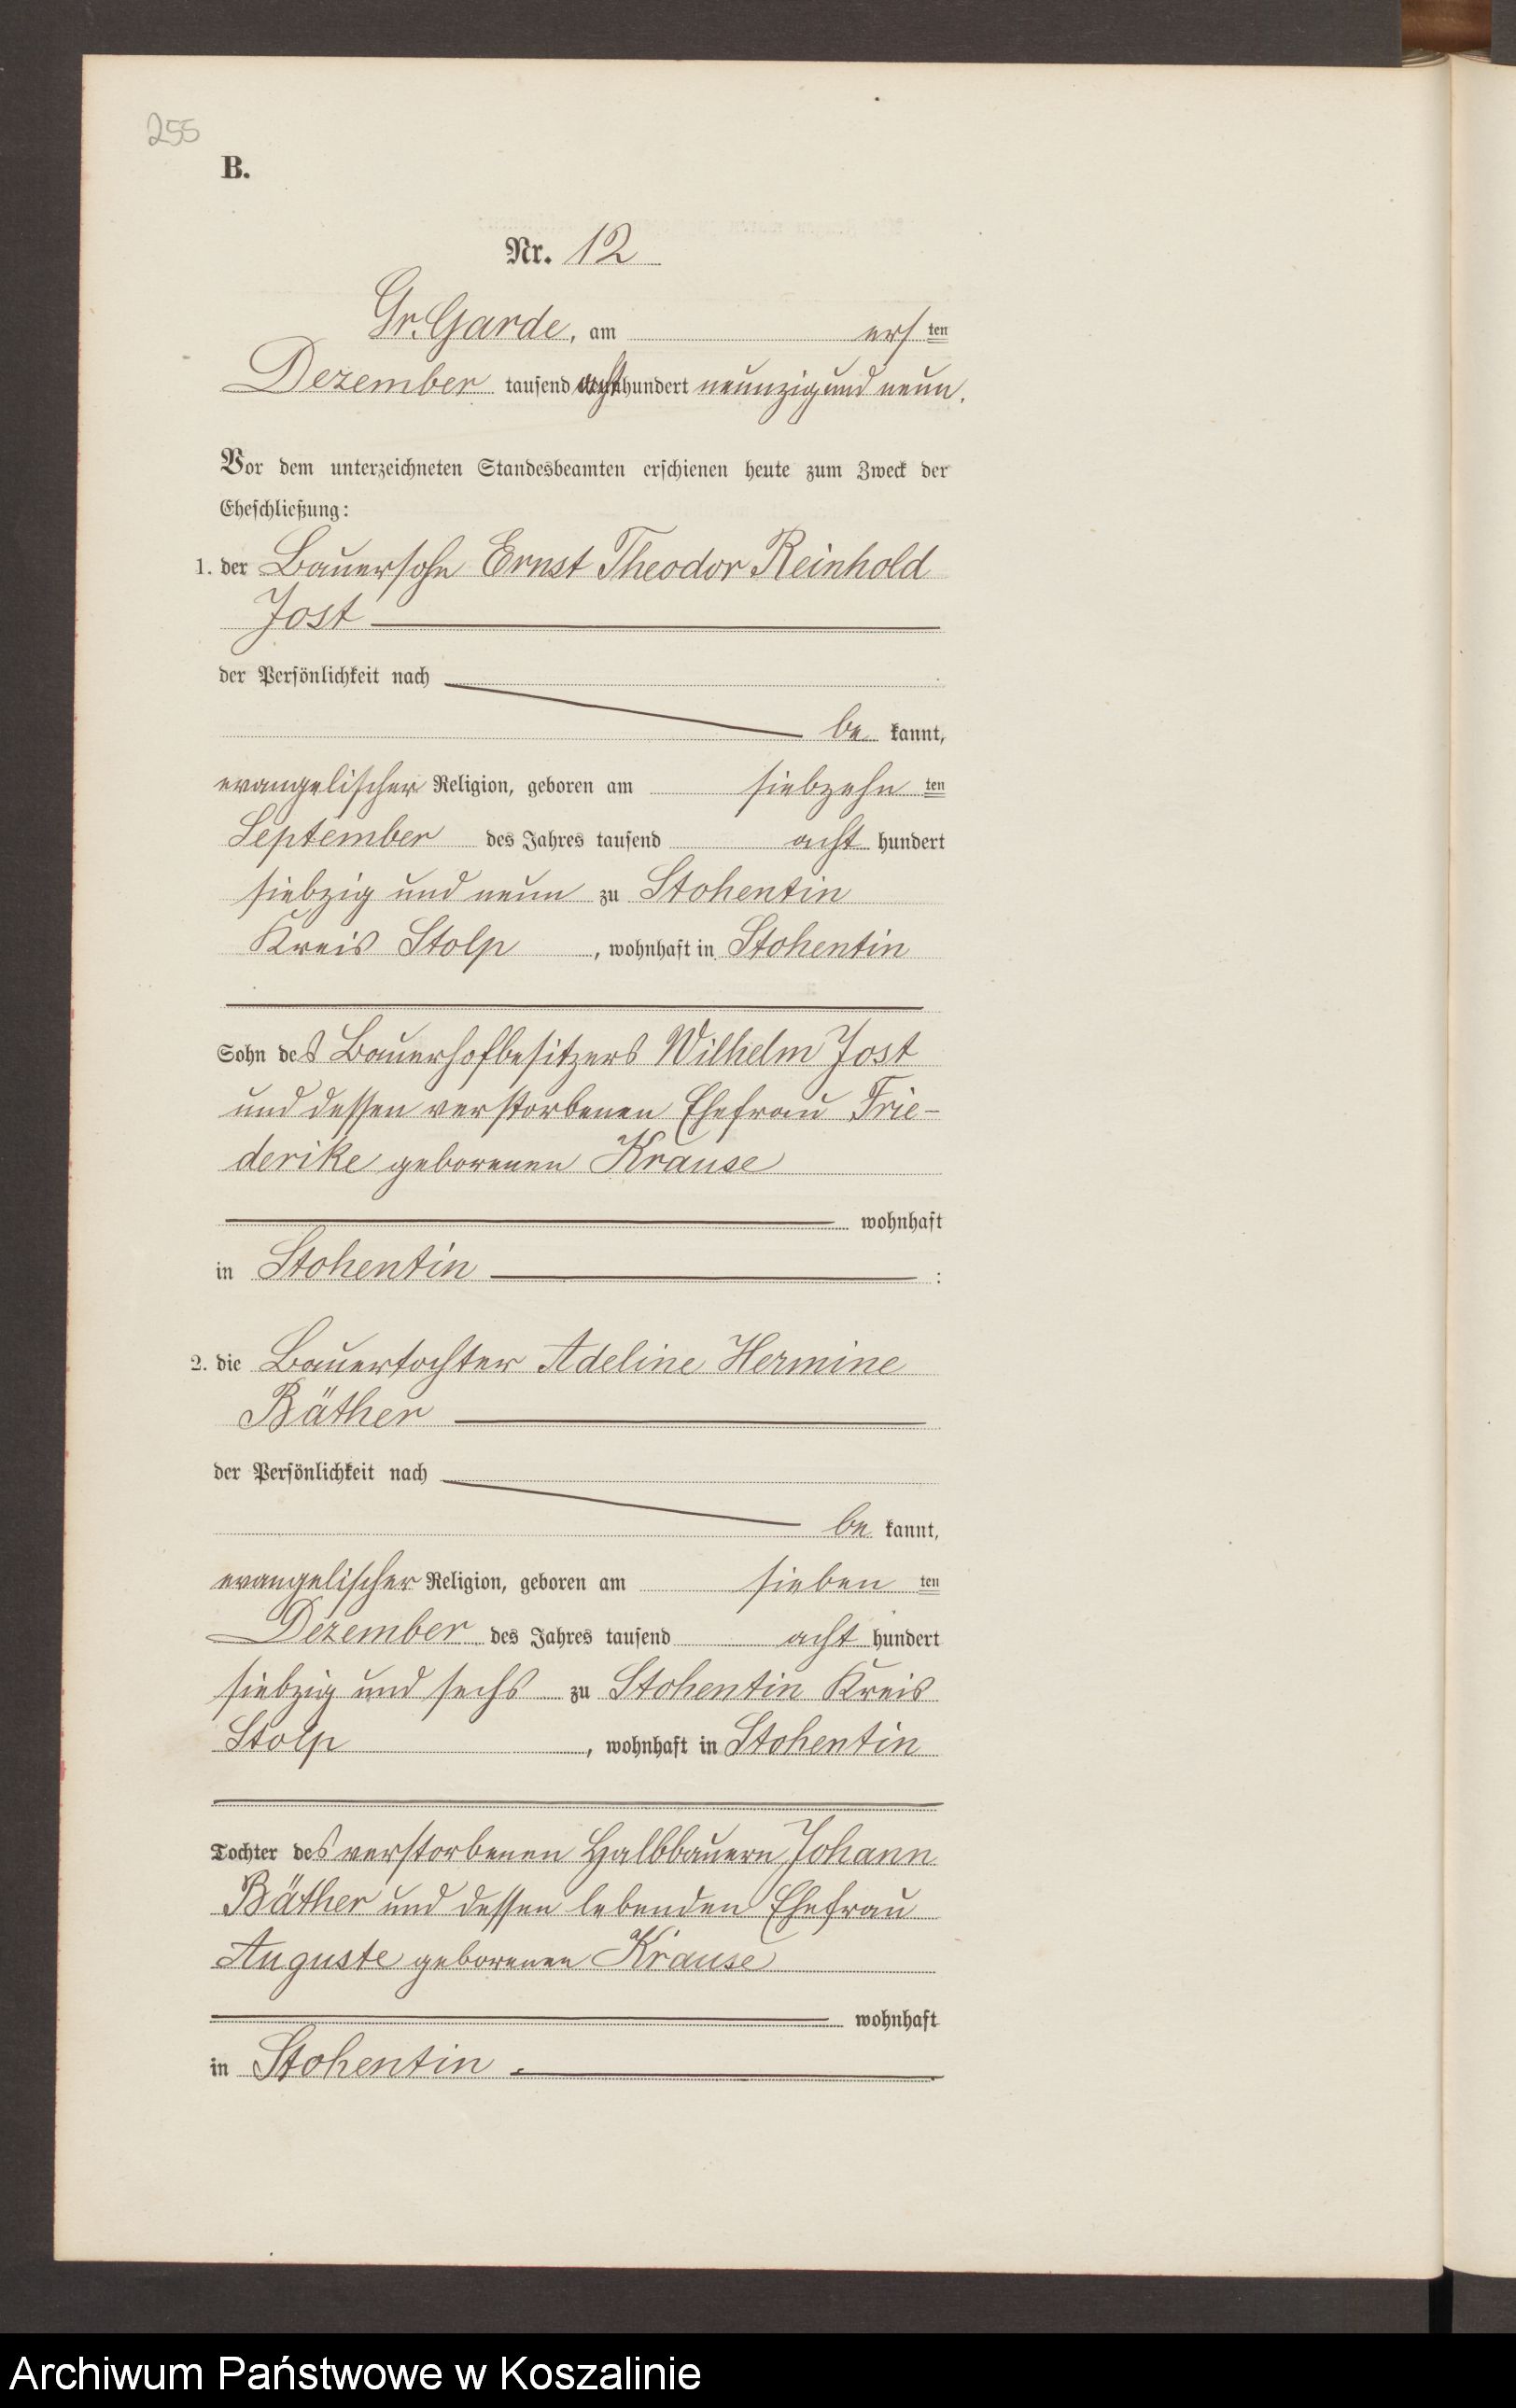 255
B.
Nr. 12
Gr. Garde, am ersten
Dezember tausend achthundert neunzig und neun.
Vor dem unterzeichneten Standesbeamten erschienen heute zum Zweck der
Eheschließung:
1. der Bauersohn Ernst Theodor Reinhold
Jost
der Persönlichkeit nach
be kannt,
evangelischer Religion, geboren am siebzehn ten
September des Jahres tausend acht hundert
siebzig und neun zu Stohentin
Kreis Stolp, wohnhaft in Stohentin
Sohn des Bauerhofbesitzers Wilhelm Jost
und dessen verstorbenen Ehefrau Frie-
derike geborenen Krause
wohnhaft
in Stohentin :
2. die Bauertochter Adeline Hermine
Bäther
der Persönlichkeit nach
be kannt,
evangelischer Religion, geboren am sieben ten
Dezember des Jahres tausend acht hundert
siebzig und sechs zu Stohentin Kreis
Stolp, wohnhaft in Stohentin
Tochter des verstorbenen Halbbauern Johann
Bäther und dessen lebenden Ehefrau
Auguste geborenen Krause
wohnhaft
in Stohentin.
Archiwum Państwowe w Koszalinie